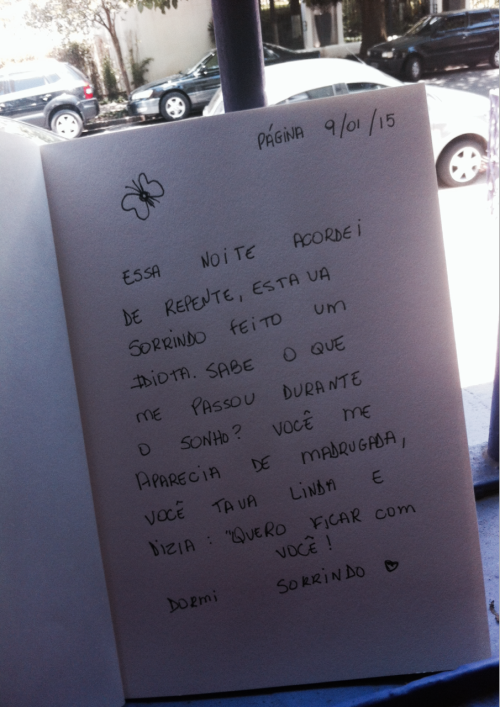 PÁGINA 9/01/15
ESSA NOITE ACORDEI
DE REPENTE, ESTAVA
SORRINDO FEITO UM
IDIOTA. SABE O QUE
ME PASSOU DURANTE
O SONHO? VOCÊ ME
APARECIA DE MADRUGADA,
VOCÊ TAVA LINDA E
DIZIA: "QUERO FICAR COM
VOCÊ!
DORMI SORRINDO